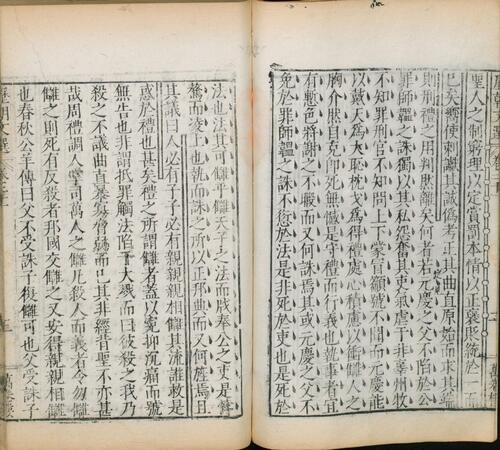 聖人之制窮理以定賞罰本情以正褒貶統於一而
已矣嚮使刺讞其誠偽考正其曲直原始而求其端
則刑禮之用判然離矣何者若元慶之父不陷於公
罪師韞之誅獨以其私怨奮其吏氣虐于非辜州牧
不知罪刑官不知問上下蒙冒籲號不聞而元慶能
以戴天為大恥枕戈為得禮處心積慮以衝讎人之
胸介然自克即死無憾是守禮而行義也執事者宜
有慙色將謝之不暇而又何誅焉其或元慶之父不
免於罪師韞之誅不愆於法是非死於吏也是死於
法也法其可讎乎讎天子之法而戕奉公之吏是悖
驁而凌上也執而誅之所以正邦典而又何旌焉且
其議曰人必有子子必有親親親相讎其流誰救是
惑於禮也甚矣禮之所謂讎者蓋以冤抑沉痛而號
無告也非謂抵罪觸法陷于大戮而曰彼殺之我乃
殺之不議曲直暴寡脅弱而已其非經背聖不亦甚
哉周禮調人掌司萬人之讎凡殺人而義者令勿
讎之則死有反殺者邦國交讎之又安得親親相讎
也春秋公羊傳曰父不受誅子復讎可也父受誅子